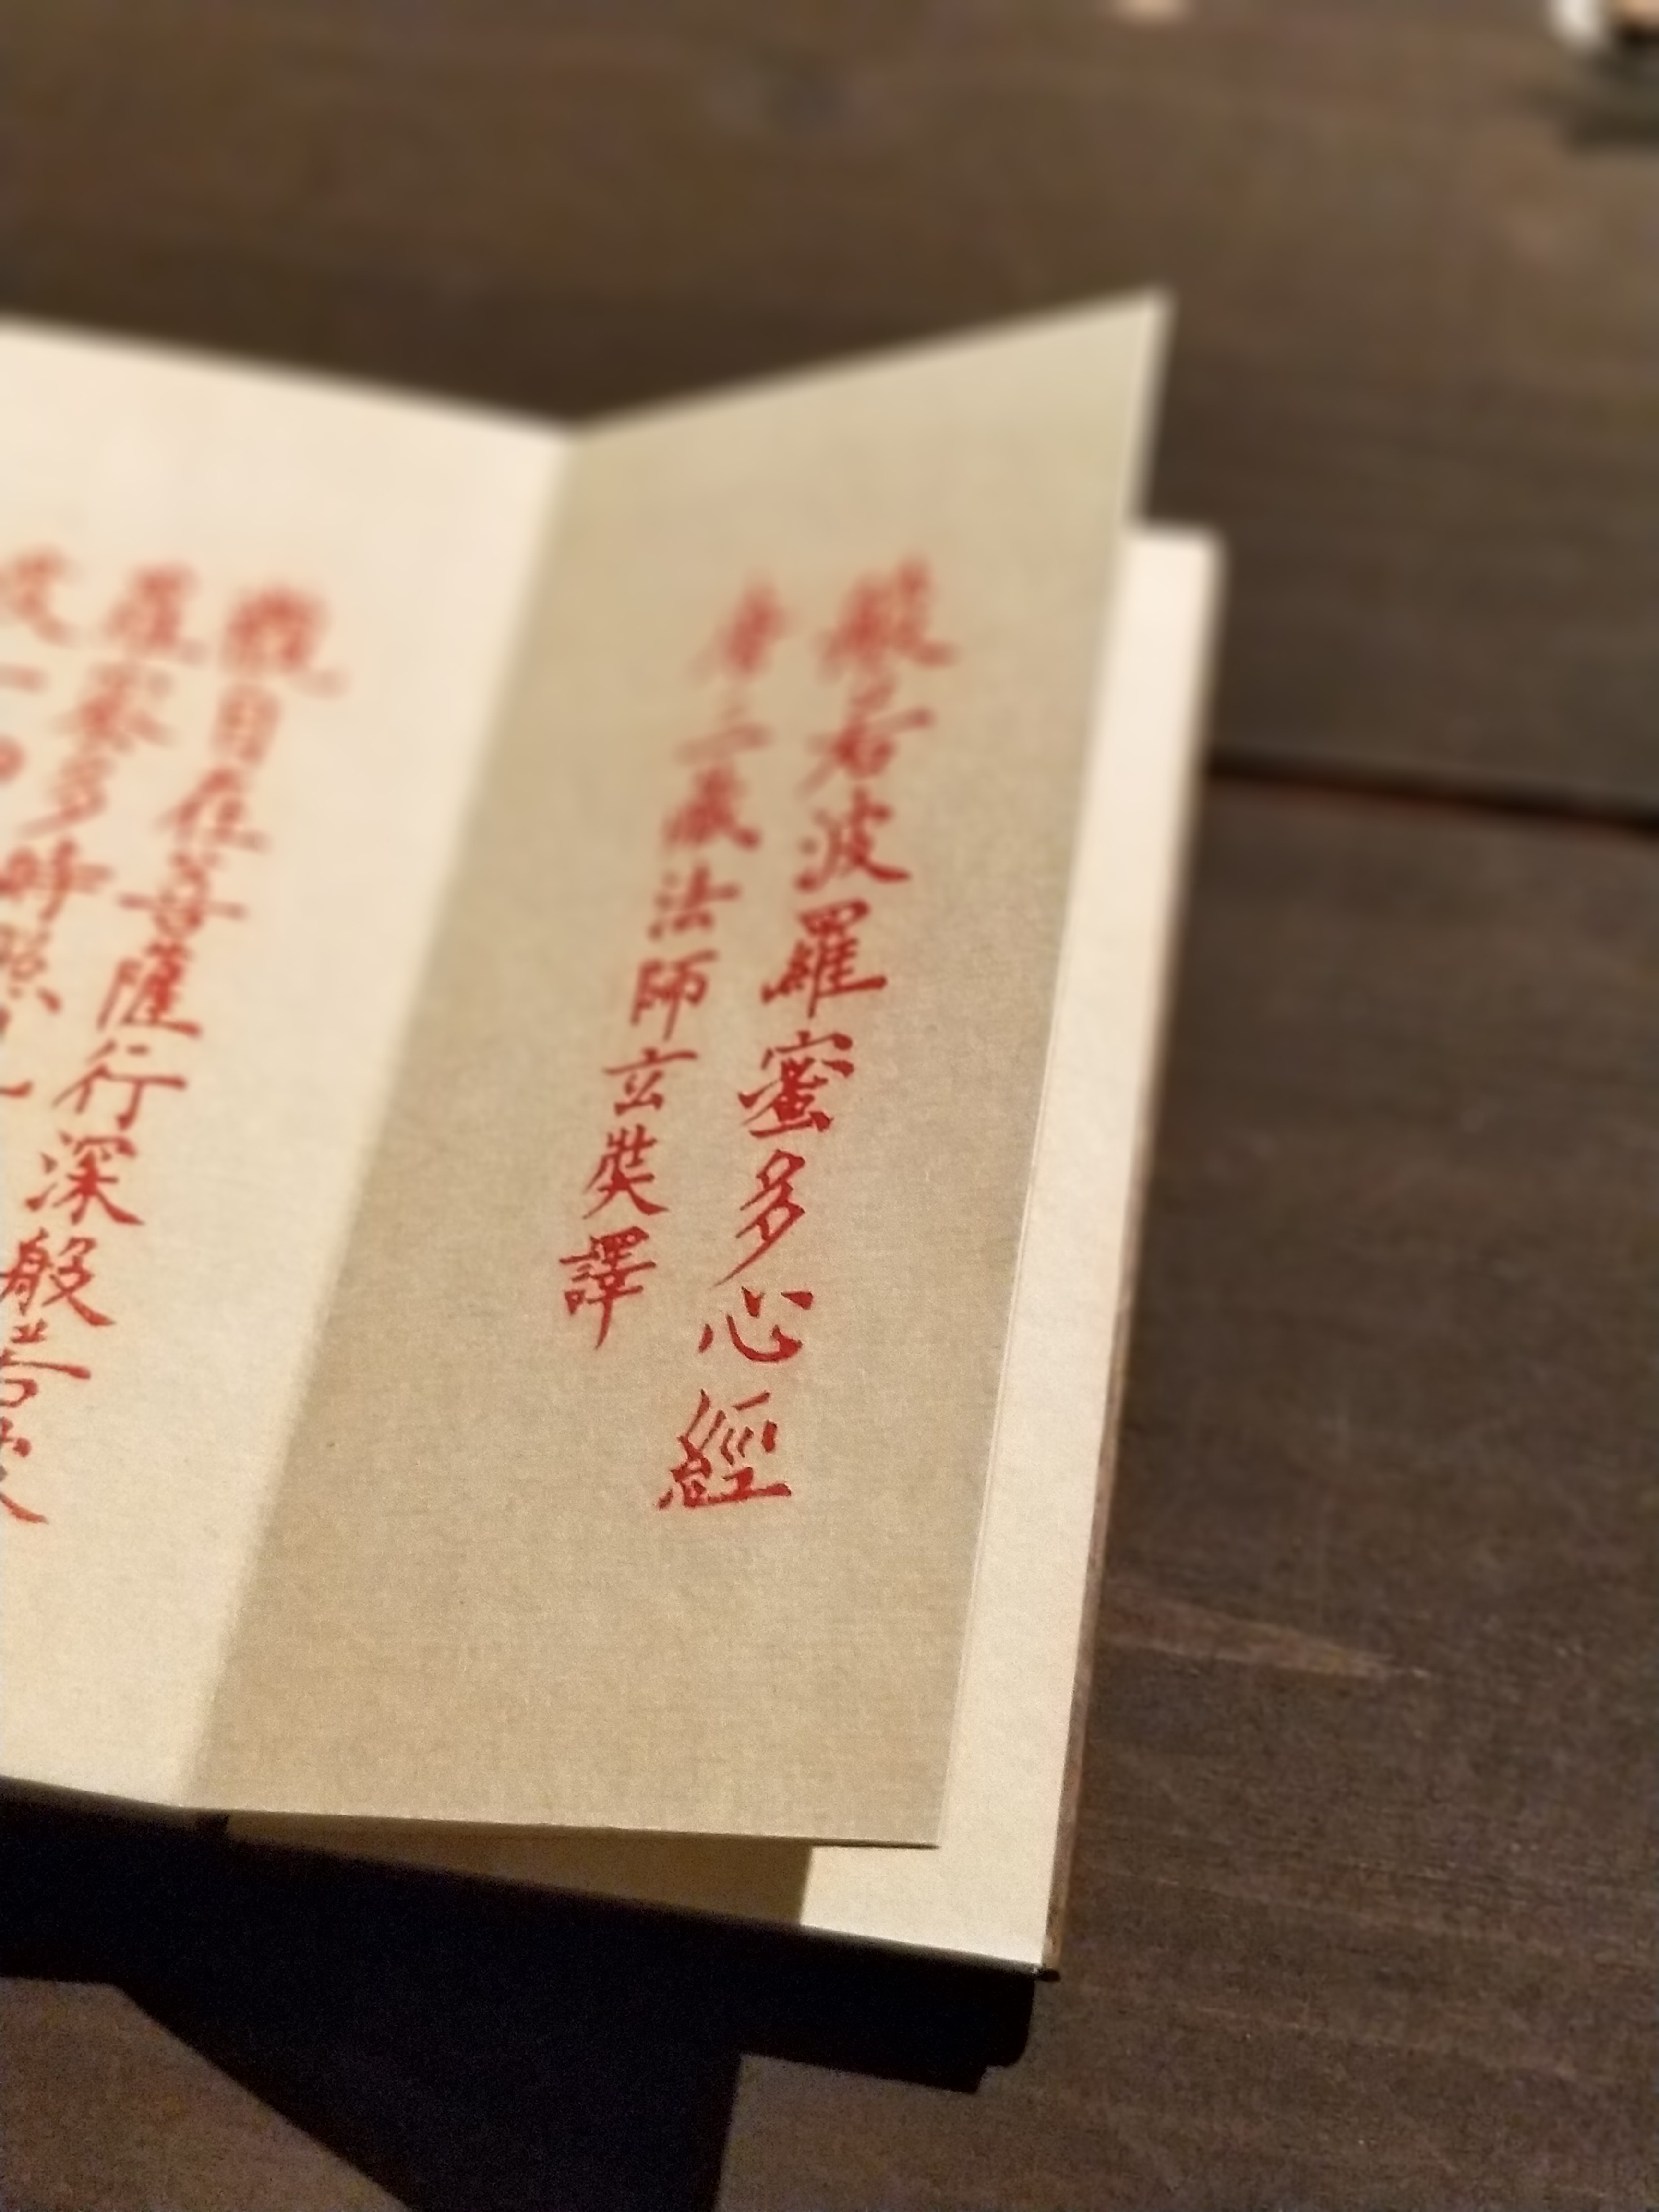 般若波羅蜜多心經
唐三藏法師玄奘譯
觀自在菩薩行深般若波
羅蜜多時照見
度一